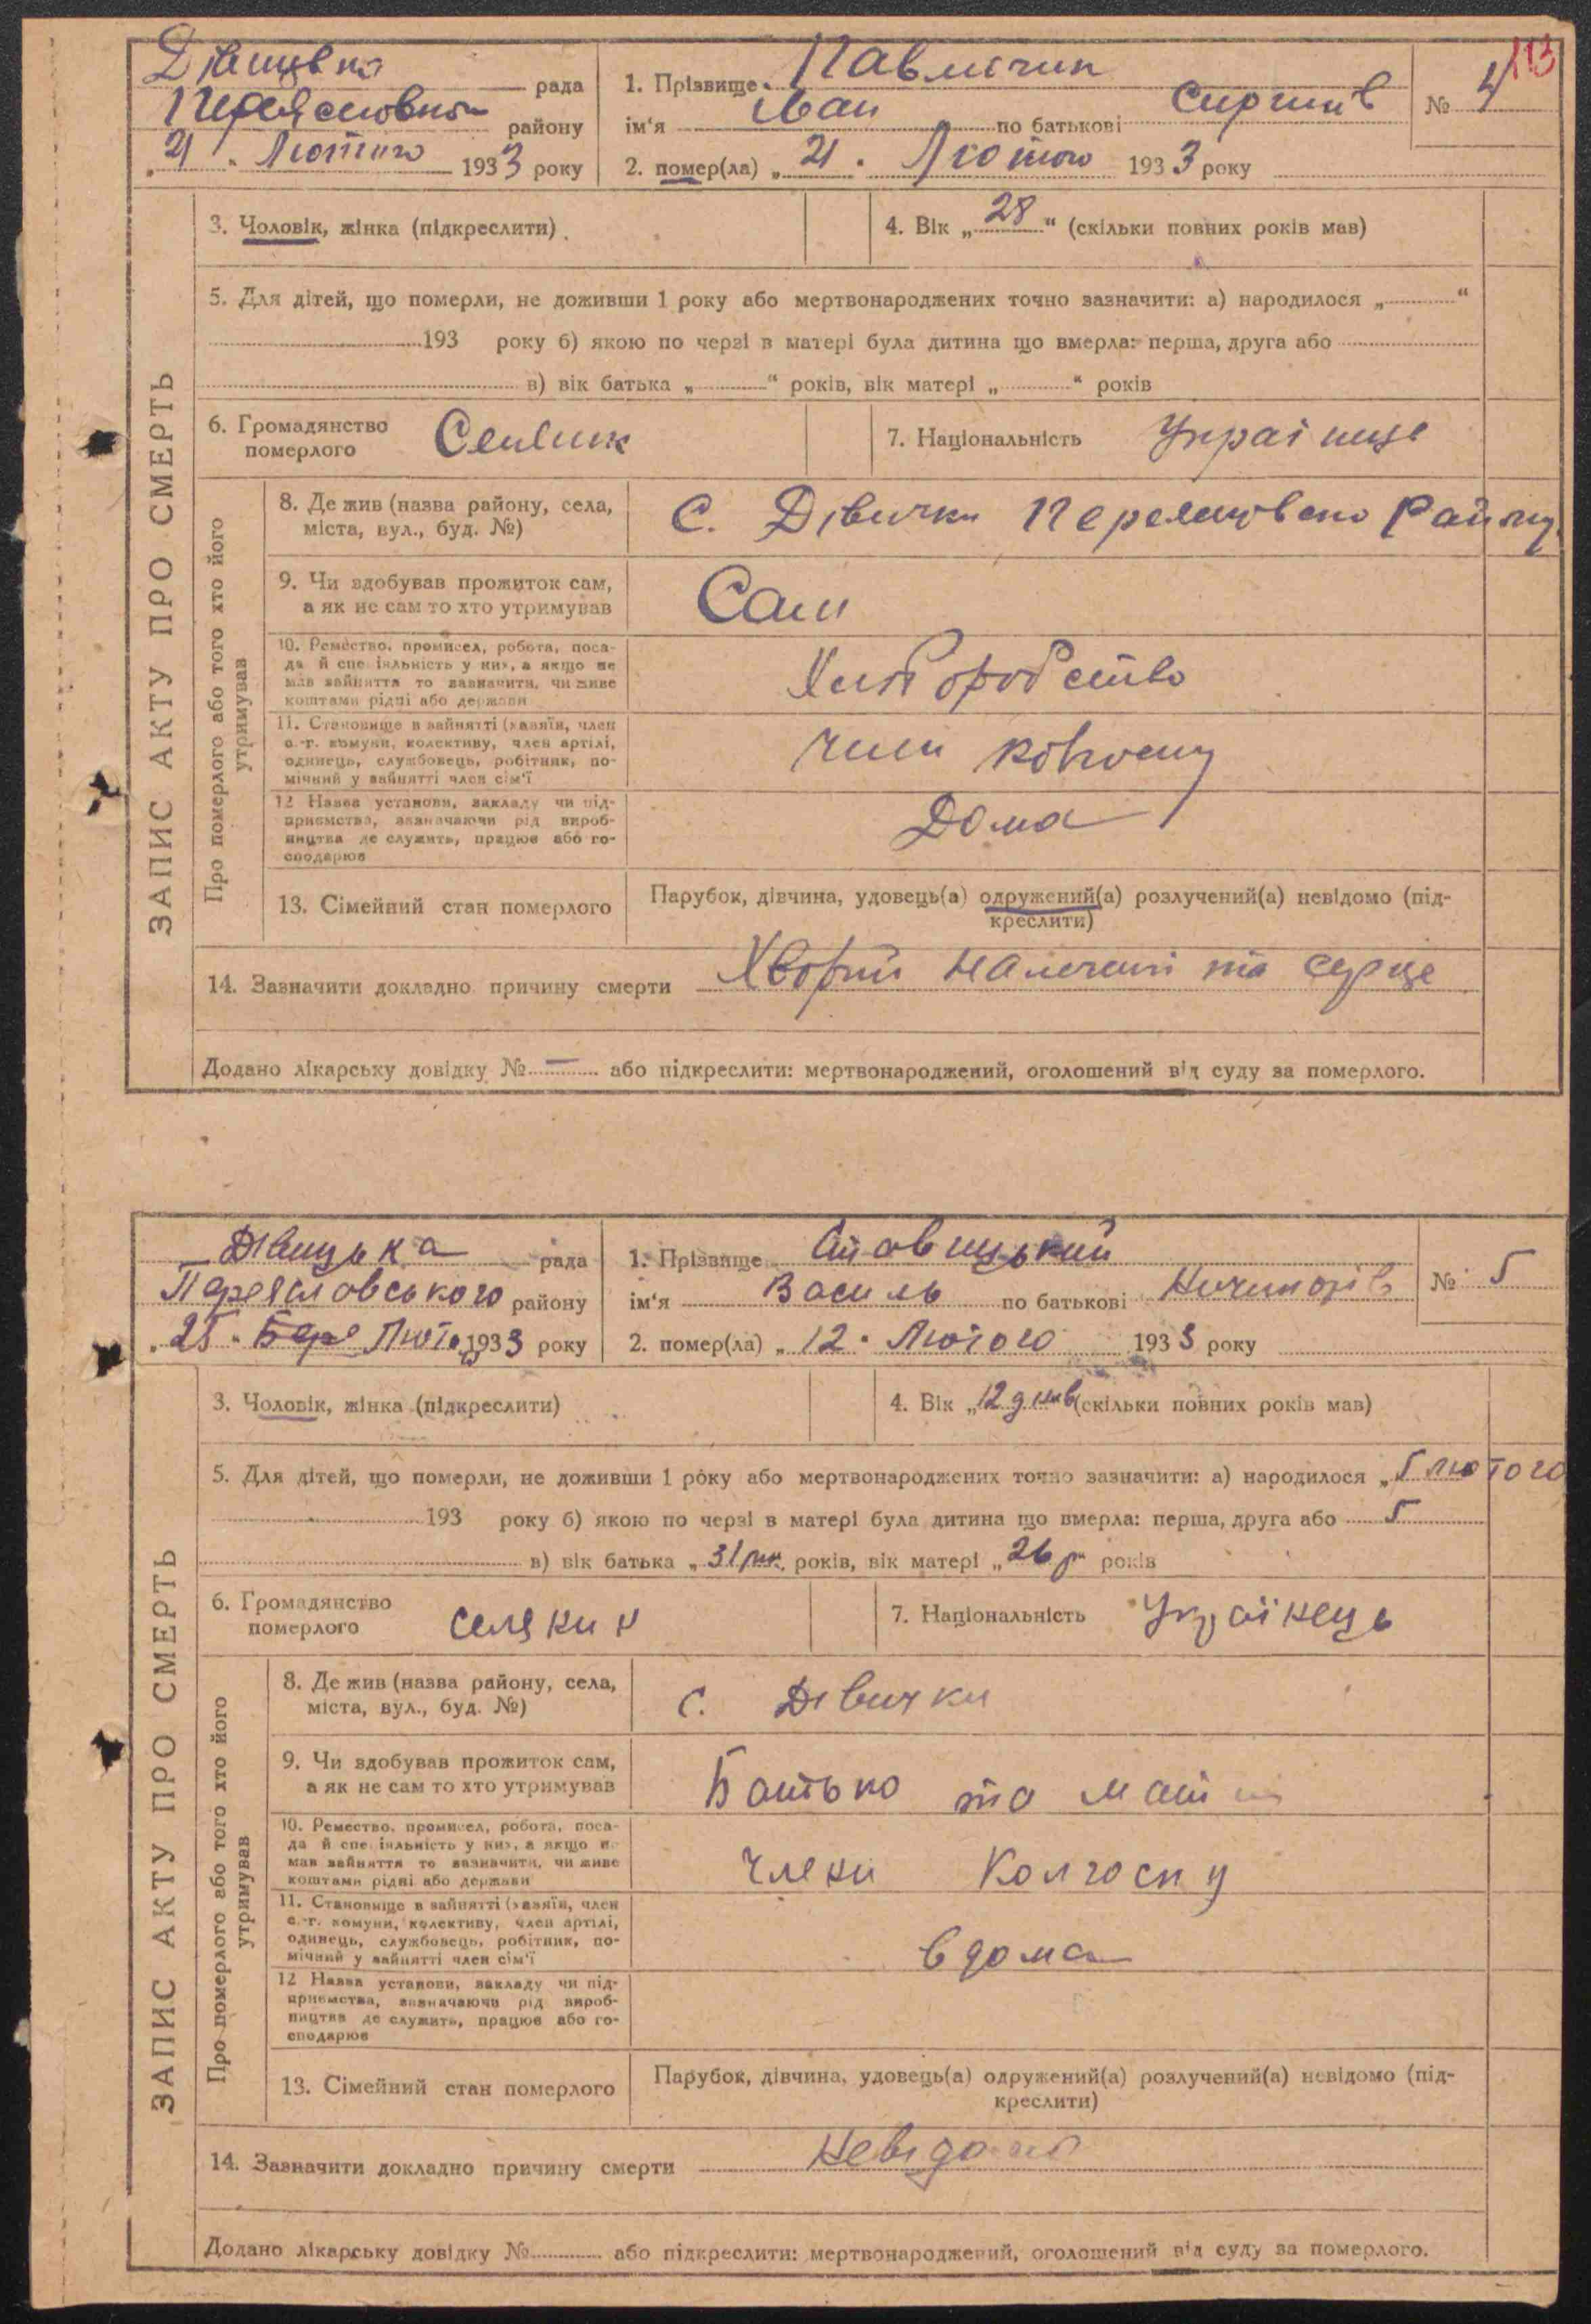 113
рада
1. Прізвище Павличик
№ 4
району
ім'я Іван по батькові
21 " Лютого 1933 року
2. помер(ла) „ 21 " Лютого 1933 року
3. Чоловік, жінка (підкреслити)
4. Вік „ 28 " (скільки повних років мав)
5. Для дітей, що померли, не доживши 1 року або мертвонароджених точно зазначити: а) народилося „ "
193 року б) якою по черзі в матері була дитина що вмерла: перша, друга або
в) вік батька „ " років, вік матері „ " років
6. Громадянство
померлого
7. Національність
ЗАПИС АКТУ ПРО СМЕРТЬ
Про померлого або того хто його
утримував
8. Де жив (назва району, села,
міста, вул., буд. №)
С. Дівички
9. Чи здобував прожиток сам,
а як не сам то хто утримував
Сам
10. Ремество, промисел, робота, поса-
да й спеціяльність у них, а якщо не
мав зайняття то зазначити, чи живе
коштами рідні або держави
11. Становище в зайнятті (хазяїн, член
с.-г. комуни, колективу, член артілі,
одинець, службовець, робітник, по-
мічний у зайнятті член сім'ї
12 Назва установи, закладу чи під-
приємства, зазначаючи рід вироб-
ництва де служить, працює або го-
сподарює
Дома
13. Сімейний стан померлого
Парубок, дівчина, удовець(а) одружений(а) розлучений(а) невідомо (під-
креслити)
14. Зазначити докладно причину смерти Хворий та серце
Додано лікарську довідку № — або підкреслити: мертвонароджений, оголошений від суду за померлого.
Дівицька рада
1. Прізвище Ставицький
№ 5
Переяславського району
ім'я Василь по батькові
25 " Бере Лютого 1933 року
2. помер(ла) „ 12 " Лютого 1933 року
3. Чоловік, жінка (підкреслити)
4. Вік „ 12 днів (скільки повних років мав)
5. Для дітей, що померли, не доживши 1 року або мертвонароджених точно зазначити: а) народилося „ 5 лютого
193 року б) якою по черзі в матері була дитина що вмерла: перша, друга або 5
в) вік батька „ 31 рік років, вік матері „ 26 р років
6. Громадянство
померлого
селянин
7. Національність Українець
ЗАПИС АКТУ ПРО СМЕРТЬ
Про померлого або того хто його
утримував
8. Де жив (назва району, села,
міста, вул., буд. №)
с. Дівички
9. Чи здобував прожиток сам,
а як не сам то хто утримував
Батько та мати
10. Ремество, промисел, робота, поса-
да й спеціяльність у них, а якщо не
мав зайняття то зазначити, чи живе
коштами рідні або держави
члени Колгоспу
11. Становище в зайнятті (хазяїн, член
с.-г. комуни, колективу, член артілі,
одинець, службовець, робітник, по-
мічний у зайнятті член сім'ї
вдома
12 Назва установи, закладу чи під-
приємства, зазначаючи рід вироб-
ництва де служить, працює або го-
сподарює
13. Сімейний стан померлого
Парубок, дівчина, удовець(а) одружений(а) розлучений(а) невідомо (під-
креслити)
14. Зазначити докладно причину смерти Невідомо
Додано лікарську довідку № або підкреслити: мертвонароджений, оголошений від суду за померлого.